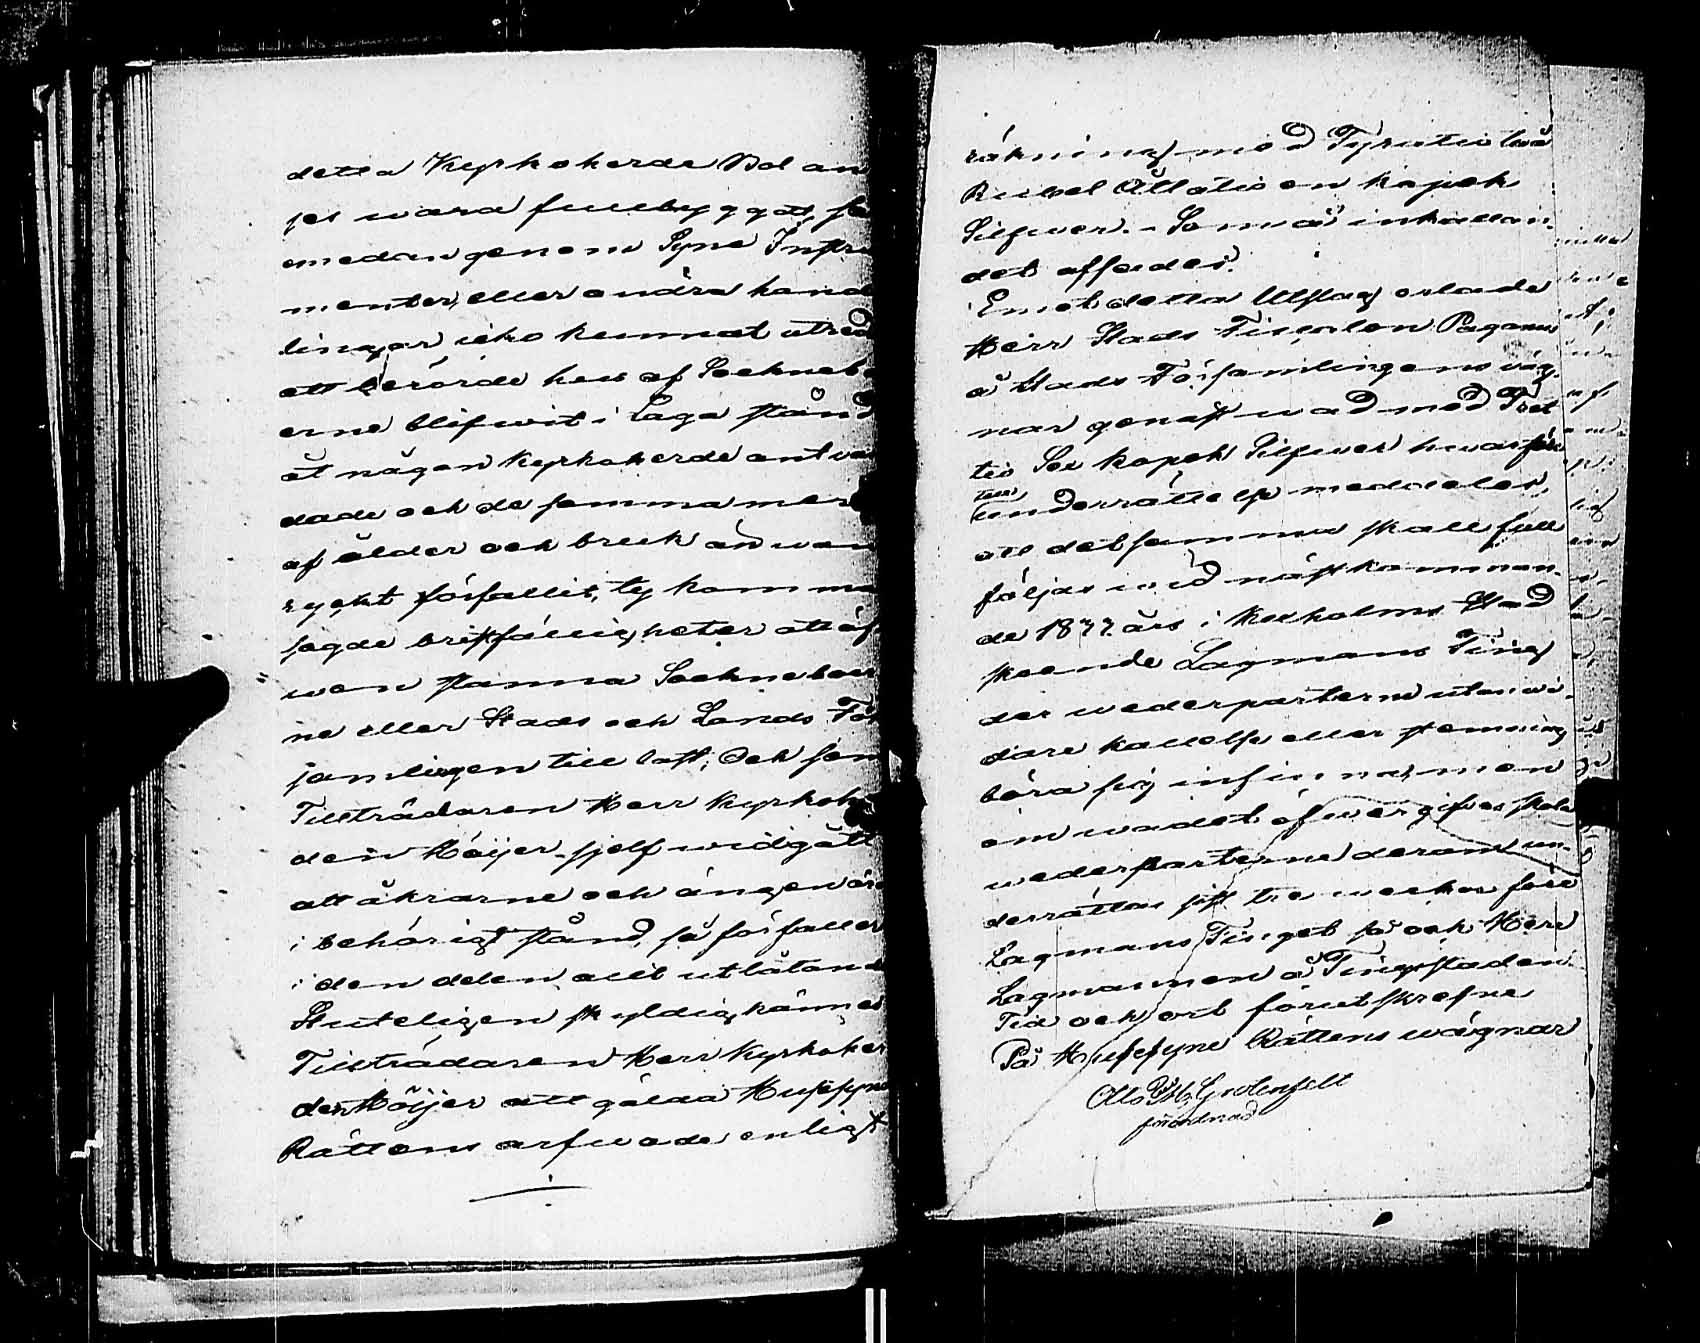 detta Kyrkoherde Bol an
ses wara fullbyggat, se
emedan genom Syne Instru
menter, eller andra hand
lingar icke kunnat utred
att berörde hus af Sockneb
erne blifwit i Laga stånd
åt någon Kyrkoherde antwar
dade och de samma mer
af ålder och bruk än wan
rygkt förfallit, ty komma
sagde bristfälligheter att äf
wen stanna Sockneboer
ne eller Stads och Lands För
samlingen till last; Och som
Tillträdaren Herr Kyrkoher
den Höijer sjelf widgått
att åkrarne och ängen äro
i behörigt stånd, så förfaller
i den delen allt utlåtande
Sluteligen skyldig kännes
Tillträdaren Herr Kyrkoher
den Höijer att gälda Hussyne
Rättens arfwode enligt
räkning med Fyratio två
Rubel Åttatio en kopek
Silfwer. Som å inkallan-
det affades.
Emot detta Utslag erlade
Herr Stads Fiscalen
å Stads Församlingens väg-
nar genast wad med Tret
tio Sex kopek Silfwer hwarföre
till
underrättelse meddeles,
att detsamma skall full
följas wid nästkomman-
de 1877 års i Kexholms Stad
skeende Lagmans Ting
der wederparterne utan wi-
dare kallelse eller stemning
böra sig infinna, men
om wadet öfwergifwes skola
wederparterne derom un-
derrättas sist tre weckor före
Lagmans Tinget så och Herr
Lagmannen å Tingsstaden.
Tid och ort förutskrefne
På Hussyne Rättens wägnar
Otto Grotenfelt
förordnad